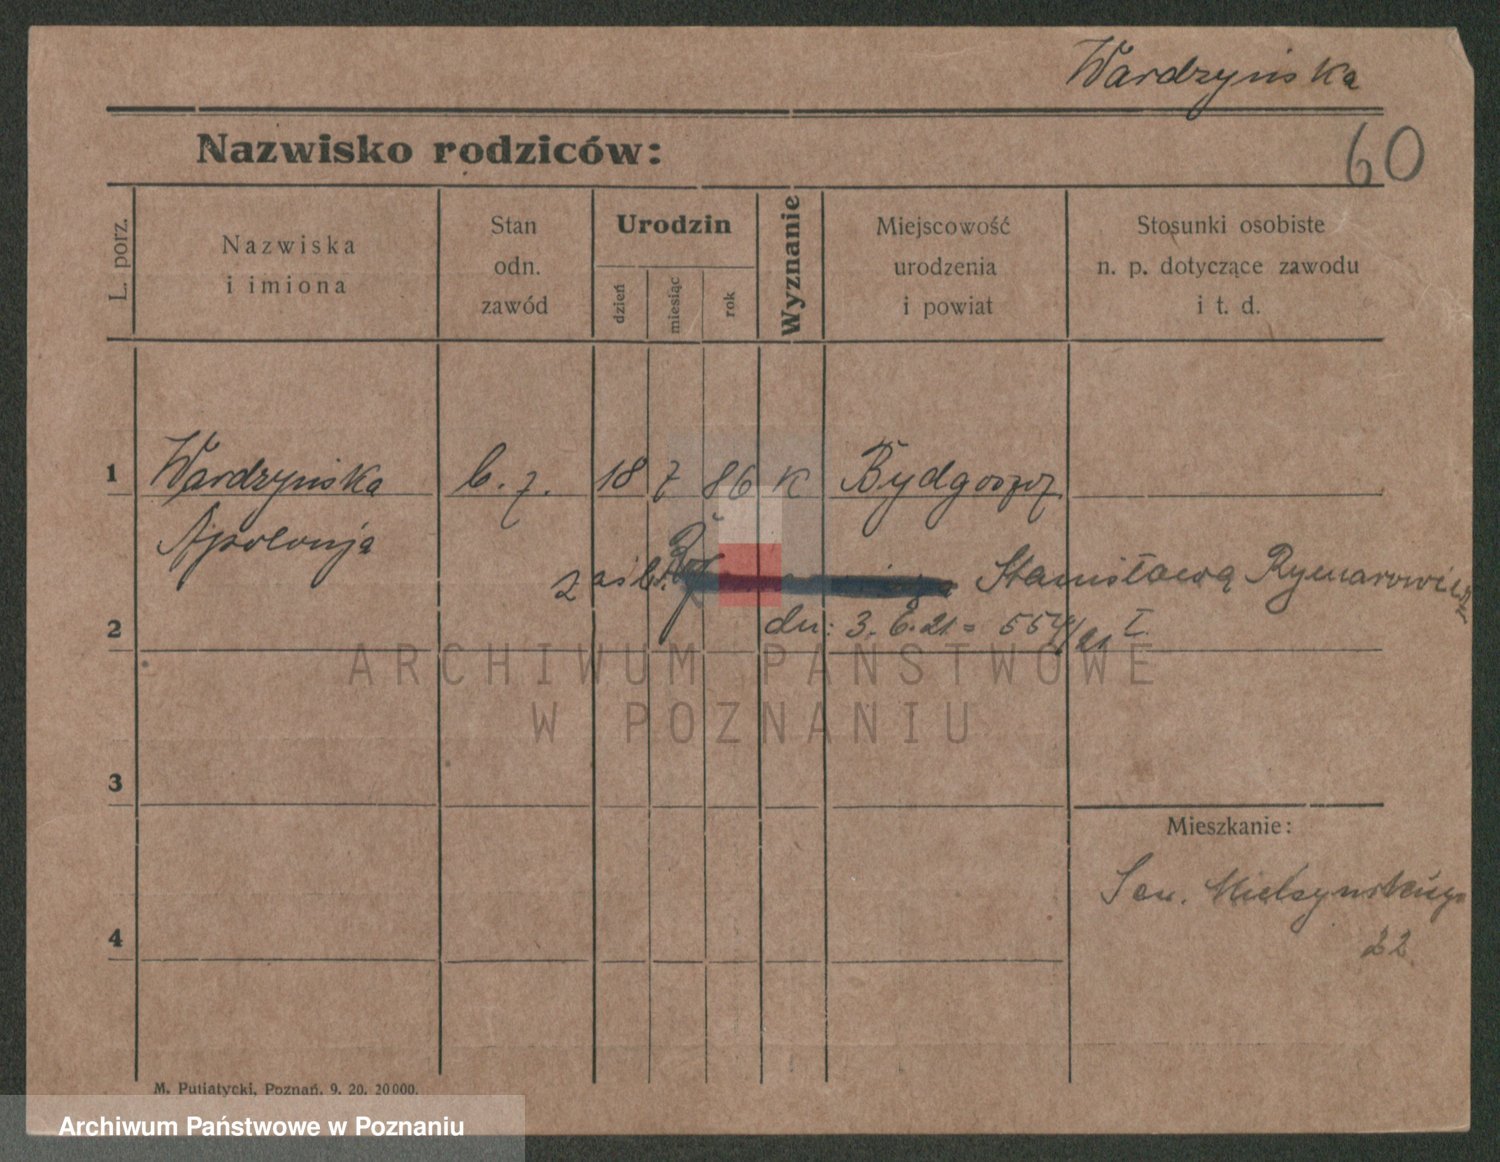 Wardzyńska
60
Nazwisko rodziców:
L. porz.
Nazwiska
i imiona
Stan
odn.
zawód
Urodzin
dzień
miesiąc
rok
Wyznanie
Miejscowość
urodzenia
i powiat
Stosunki osobiste
n. p. dotyczące zawodu
i t. d.
1 Wardzyńska b. z. 18 7 86 K Bydgoszcz
Apolonja
zaśl. Stanisławą Rymarowicz
2 dn: 3. 6. 21 = 554/21 I.
ARCHIWUM PAŃSTWOWE
W POZNANIU
3
Mieszkanie:
Sew. Mielżyńskiego
22
4
M. Putiatycki, Poznań, 9. 20. 20000.
Archiwum Państwowe w Poznaniu